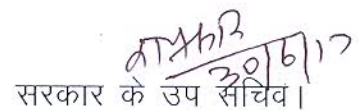 30/6/17
सरकार के उप सचिव।